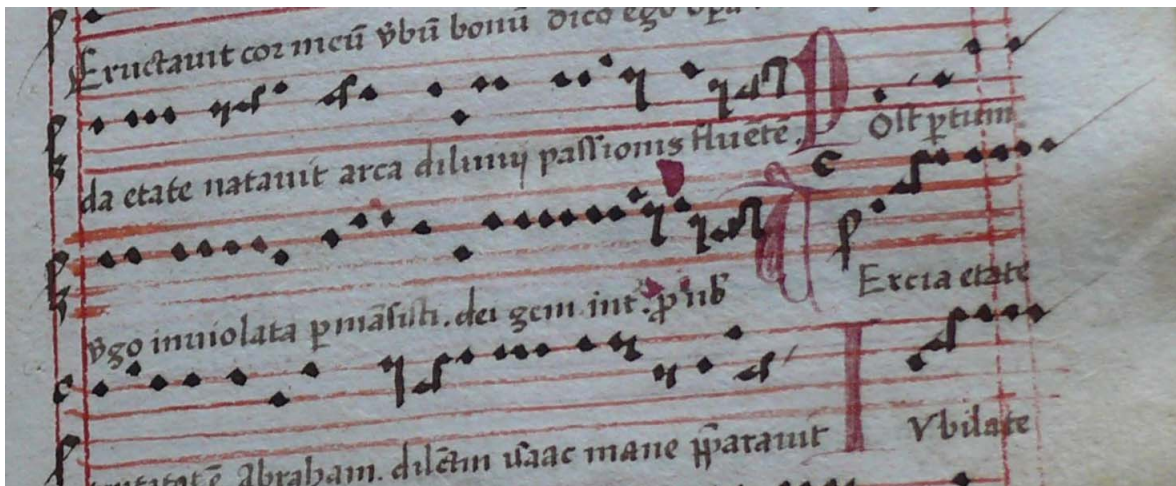 Eructauit cor meū v̄bū bonū dico ego
da etate natauit arca diluuij passionis fluētē. Post ꝑtum
v̄go inuiolata ꝑmāsisti. dei gem. int. ꝓ nb̄ Tercia etate
Abraham. dilc̄m ysaac mane p̄parauit Iubilate